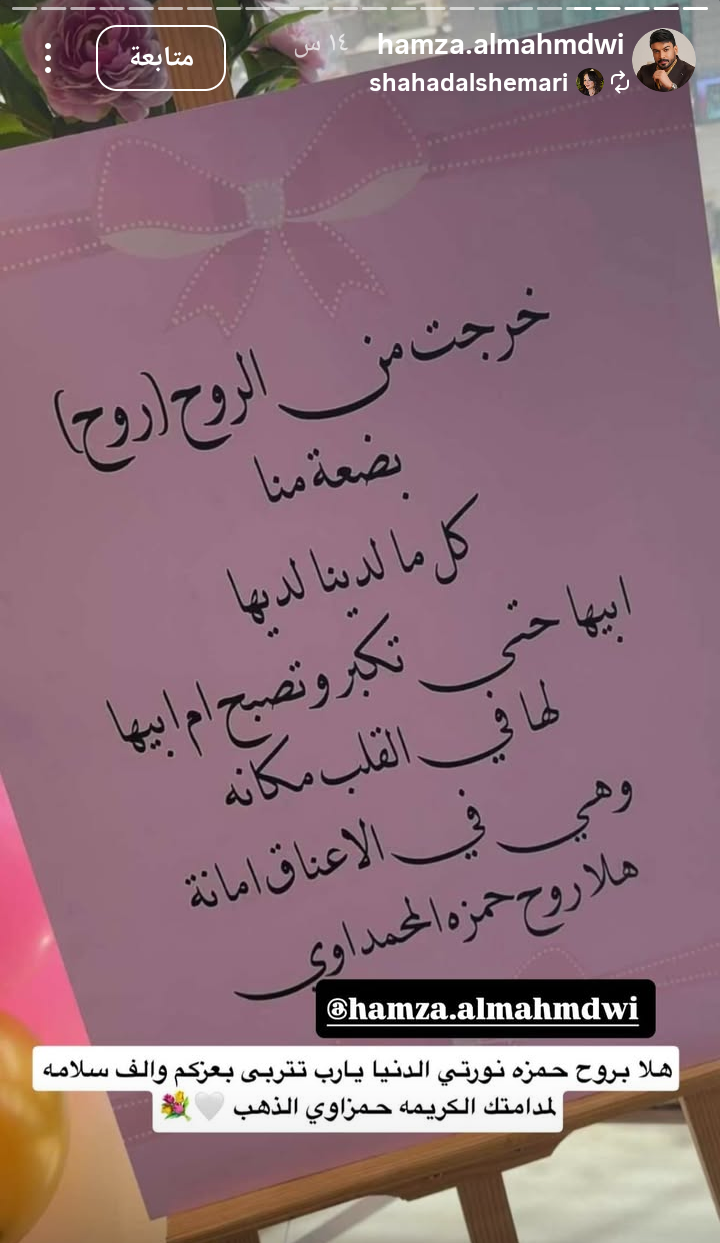 hamza.almahmdwi
١٤ س
متابعة
shahadalshemari
خرجت من الروح (روح)
بضعة منا
كل ما لدينا لديها
ابيها حتى تكبر وتصبح ام ابيها
لها في القلب مكانه
وهي في الاعناق امانة
هلا روح حمزه المحمداوي
@hamza.almahmdwi
هلا بروح حمزه نورتي الدنيا يارب تتربى بعزكم والف سلامه
لمدامتك الكريمه حمزاوي الذهب 🤍💐